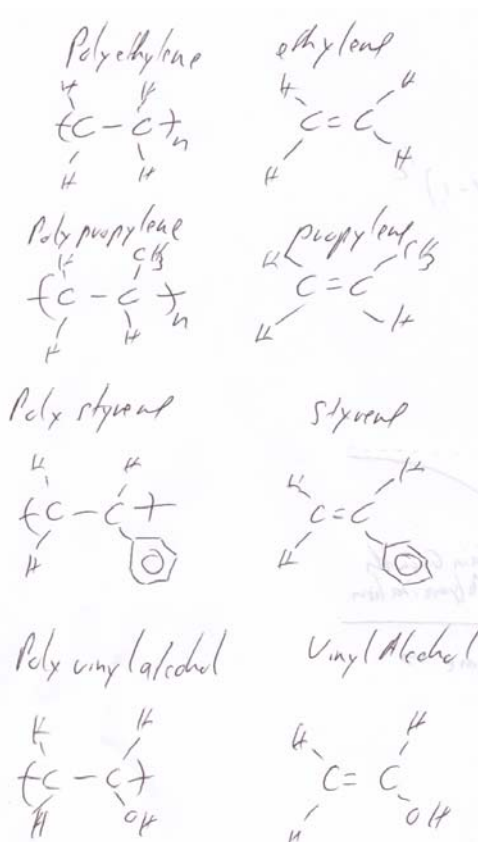 Polyethylene ethylene
H H H H
(C - C)n C = C
H H H H
Polypropylene propylene
H CH3 H CH3
(C - C)n C = C
H H H H
Poly styrene Styrene
H H H H
(C - C) C = C
H H
Poly vinyl alcohol Vinyl Alcohol
H H H H
(C - C) C = C
H OH H OH